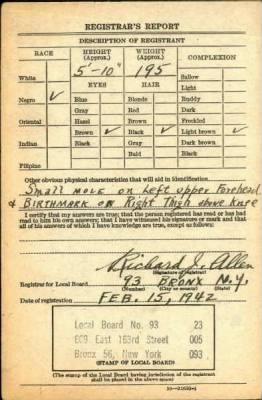 REGISTRAR'S REPORT
DESCRIPTION OF REGISTRANT
RACE HEIGHT (Approx.) WEIGHT (Approx.) COMPLEXION
5'-10" 195
White Sallow
EYES HAIR Light
Negro ✓ Blue Blonde Ruddy
Gray Red Dark
Oriental Hazel Brown Freckled
Brown ✓ Black ✓ Light brown ✓
Indian Black Gray Dark brown
Bald Black
Filipino
Other obvious physical characteristics that will aid in identification
Small mole on Left upper Forehead
& BIRTHMARK on Right Thigh above knee
I certify that my answers are true; that the person registered has read or has had
read to him his own answers; that I have witnessed his signature or mark and that
all of his answers of which I have knowledge are true, except as follows:
Richard J. Allen
(Signature of registrar)
Registrar for Local Board 93 BRONX N.Y.
(Number) (City or county) (State)
Date of registration FEB. 15, 1942
Local Board No. 93 23
East 163rd Street 005
Bronx 56, New York 093
(STAMP OF LOCAL BOARD)
(The stamp of the Local Board having jurisdiction of the registrant
shall be placed in the above space.)